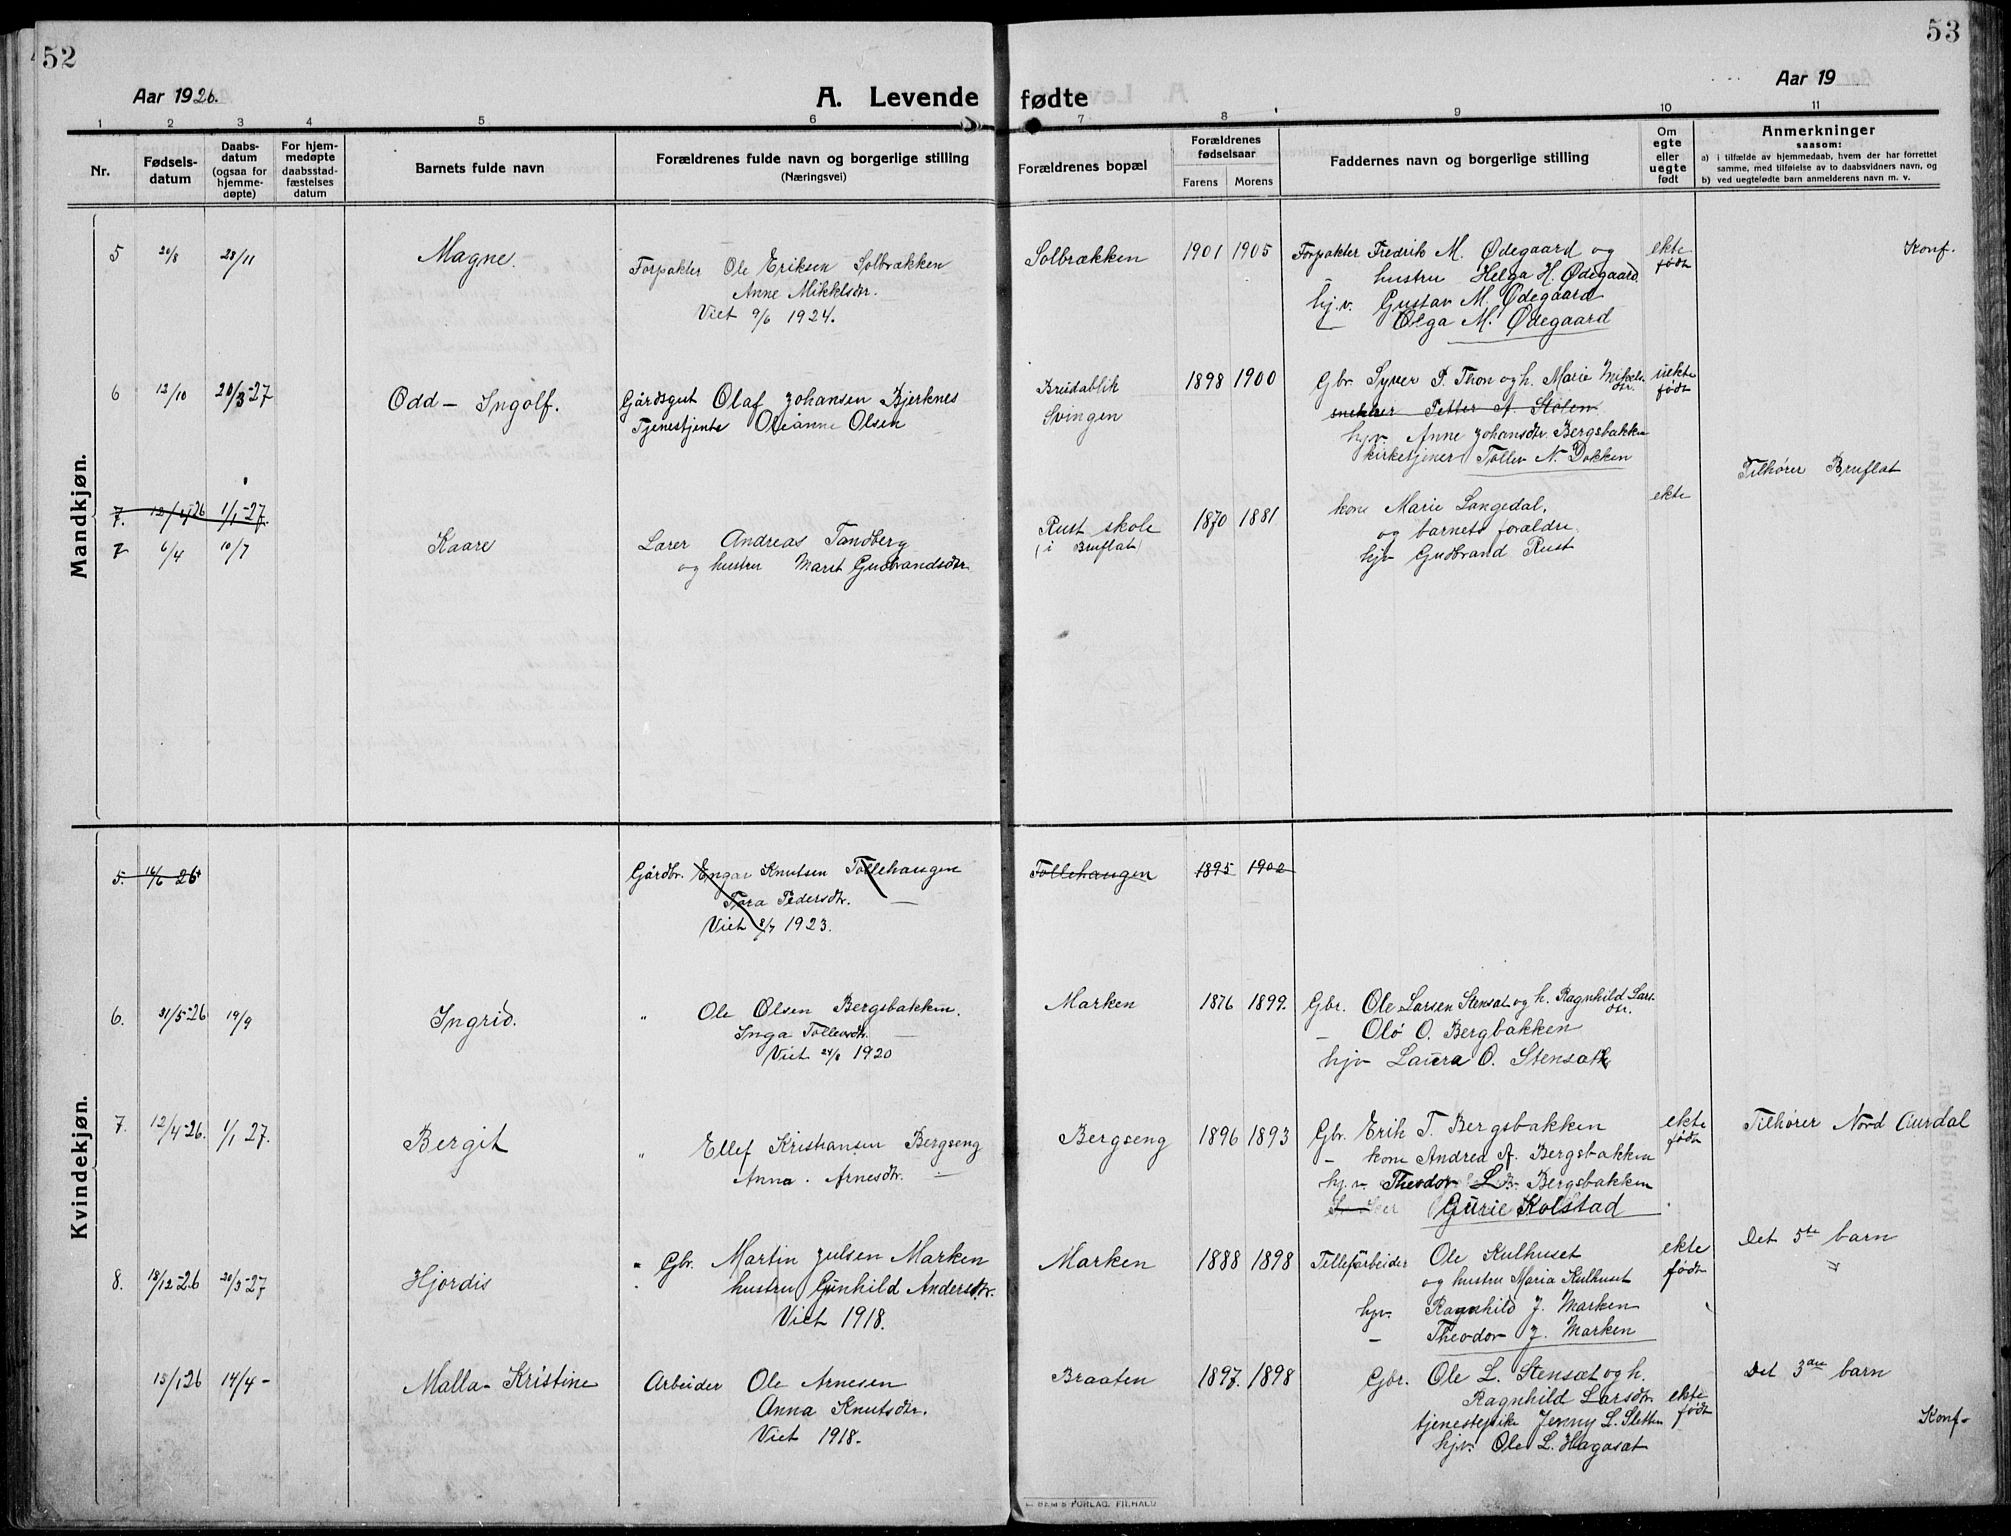 52
53
Aar 1926.
A. Levende fødte
Aar 19
1 2 3 4 5 6 7 8 9 10 11
Nr.
Fødsels-
datum
Daabs-
datum
(ogsaa for
hjemme-
døpte)
For hjem-
medøpte
daabsstad-
fæstelses
datum
Barnets fulde navn
Forældrenes fulde navn og borgerlige stilling
(Næringsvei)
Forældrenes bopæl
Forældrenes
fødselsaar
Farens
Morens
Faddernes navn og borgerlige stilling
Om
egte
eller
uegte
født
Anmerkninger
saasom:
a) i tilfælde av hjemmedaab, hvem der har forrettet
samme, med tilføielse av to daabsvidners navn, og
b) ved uegtefødte barn anmelderens navn m. v.
Mandkjøn.
5 20/8 28/11 Magne. Forpakter Ole Eriksen Solbrækken
Anne Mikkelsdtr.
Viet 9/6 1924.
Solbrækken 1901 1905 Forpakter Fredrik M. Ødegaard og
hustru Helga H. Ødegaard
hj.v. Gustav M. Ødegaard
Olga M. Ødegaard
ekte
født
Konf.
6 12/10 20/3-27 Odd - Ingolf. Gårdsgut Olaf Johansen Bjerknes
Tjenestjente Olianne Olsen
Breidablik
Svingen
1898 1900 Gbr. Syver P. Thon og h. Marie Mikels-
dtr.
snekker Petter A. Stolen
hjv. Anne Johansdtr. Bergsbakken
kirketjener Tollev N. Dokken
uekte
født
7. 12/4-26 1/1-27.
7 6/4 10/7 Kaare Lærer Andreas Tandberg
og hustru Marit Gudbrandsdtr.
Rust skole
(i Bruflat)
1870 1881 kone Marie Langedal,
og barnets forældre.
hjv Gudbrand Rust
ekte
Tilhører Bruflat
Kvindekjøn.
5. 16/6 26 Gårdbr. Engar Knutsen Tollehaugen
Tora Pedersdtr.
Viet 8/7 1923.
Tollehaugen 1895 1902
6. 31/5-26 19/9 Ingrid. " Ole Olsen Bergsbakken.
Inga Tollevsdtr.
Viet 24/6 1920
Marken 1876 1899. Gbr. Ole Larsen Stensæt og h. Ragnhild Lars-
dtr.
- Olø O. Bergbakken
hjv Laura O. Stensæt
7. 12/4-26. 1/1 27. Bergit " Ellef Kristiansen Bergseng
Anna Arnesdtr. -
Bergseng 1896 1893 Gbr. Erik T. Bergsbakken
- kone Andrea A. Bergsbakken
hj.v. Theodor Bergsbakken
Gurie Kolstad
ekte
født
Tilhører Nord Aurdal
8. 18/12-26 20/3-27 Hjordis " Gbr. Martin Julsen Marken
hustru Gunhild Andersdtr.
Viet 1918.
Marken 1888 1898 Ole Kulhuset
og hustru Maria Kulhuset
hjv. Ragnhild J. Marken
- Theodor J. Marken
ekte
født
Det 5te barn
15/1 26 14/4 - Malla - Kristine Arbeider Ole Arnesen
Anna Knutsdtr.
Viet 1918.
Braaten 1897. 1898 Gbr. Ole L. Stensæt og h.
Ragnhild Larsdtr.
tjenestepike Jenny L. Sletten
hjv. Ole L. Hagasæt
ekte
født
Det 3die barn
Konf-